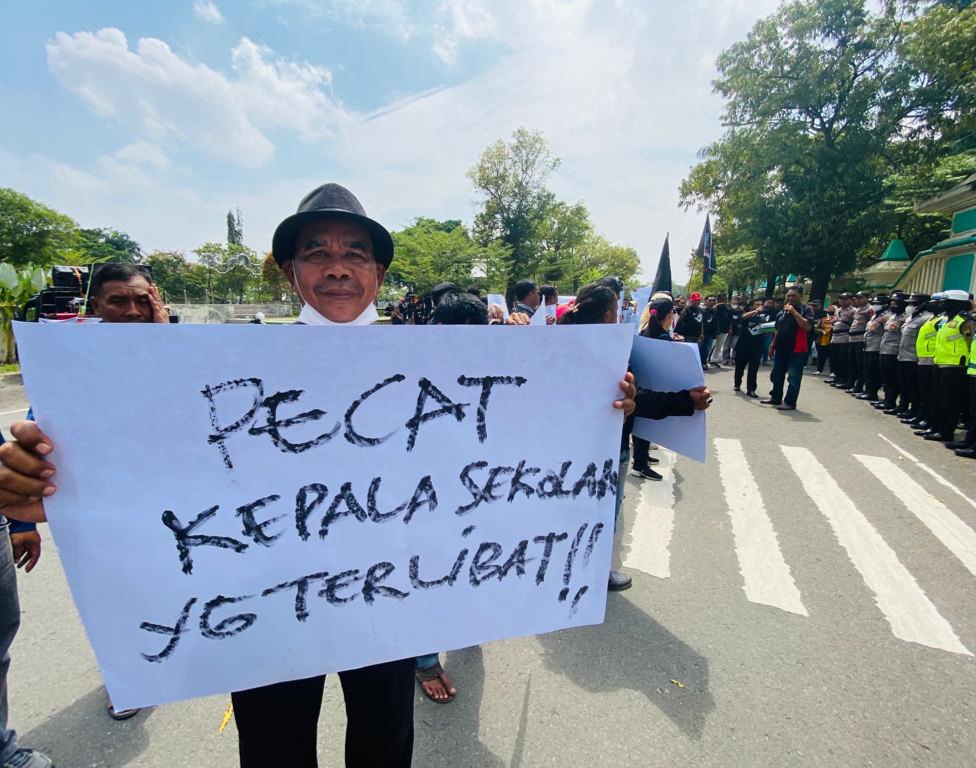 PECAT
KEPALA SEKOLAH
YG TERLIBAT!!